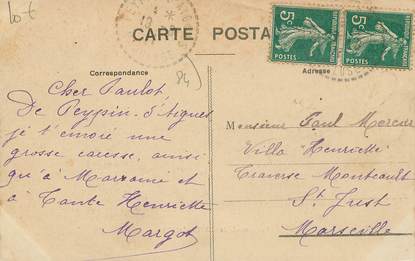 10 €
CARTE POSTA
5c
5c
POSTES
POSTES
Correspondance
Adresse
84
Cher Paulot
De Peypin-d'Aigues
je t'envoie une
grosse caresse, ainsi
qu'à Marraine et
à Tante Henriette
Margot
Monsieur Paul Mercier
Villa "Henriette"
Traverse Montcault
St Just
Marseille